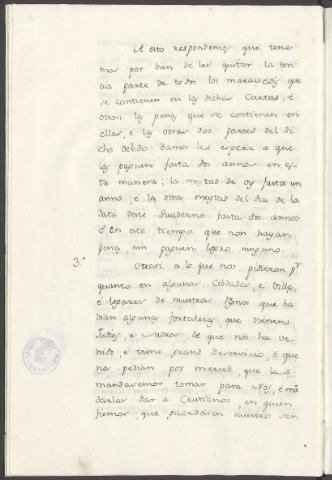 A esto respondemos que tene
mos por bien de les quitar la ter
cia parte de todos los maravedis que
se contienen en las dichas Cartas, é
otrosi las penas que se contienen en
ellas, é las otras dos partes del di
cho debdo damos les espera a que
las paguen fasta dos annos en es
ta manera; la meytad de oy fasta un
anno, é la otra meytad del dia de la
data deste quaderno fasta dos annos
é en este tiempo que non hayan
pena nin paguen logro ninguno.
3.º Otrosi a lo que nos pidieron pr
quanto en algunas Cibdades, é Villas,
é logares de nuestros Regnos que ha
bian algunas fortalezas que tienen
Judios, e Moros de que nos ha ve
nido, e viene grand deservicio, é que
nos pedian por merced, que las
mandasemos tomar para Nos, é man
darlas dar a Cristianos, en quien
fiemos, que guardasen nuestro ser